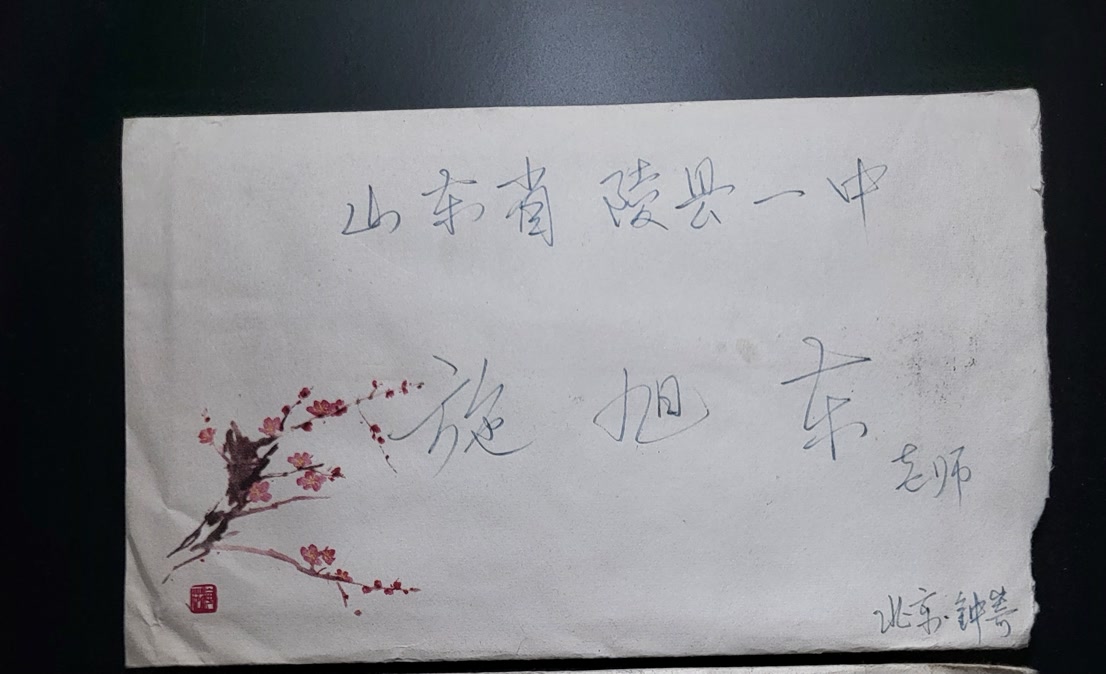 山东省陵县一中
施旭东
老师
北京·钟